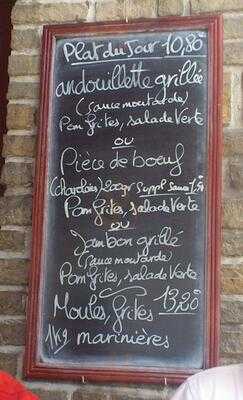 Plat du Jour 10,80
andouillette grillée
(sauce moutarde)
Pom frites, salade Verte
ou
Pièce de boeuf
(charolais) 200gr Suppl Sauce 1,50
Pom frites, salade Verte
ou
Jambon grillé
(sauce moutarde)
Pom frites, salade Verte
Moules, frites 13,20
1kg marinières